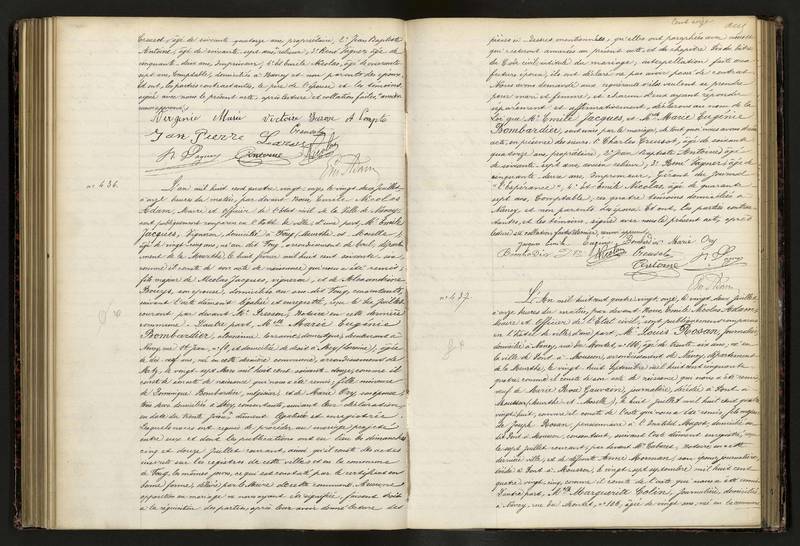 Creusot, âgé de soixante quatorze ans, propriétaire, 2° Jean Baptiste
Antoine, âgé de soixante sept ans, relieur, 3° René Vagner âgé de
cinquante deux ans, Imprimeur, 4° et Emile Nicolas, âgé de quarante
sept ans, Comptable, domiciliés à Nancy et non parents des époux.
Et ont, les parties contractantes, le père de l'épouse et les témoins,
signé avec nous le présent acte, après lecture et collation faites, aucun
Virginie Marie Victoire
Jan Pierre Creusot
Antoine Nicolas
n° 436.
L'an mil huit cent quatre vingt onze le vingt deux juillet
à onze heures du matin, par devant Nous Emile Nicolas
Adam, Maire et Officier de l'Etat civil de la Ville de Nancy,
sont publiquement comparus en l'hôtel de ville d'une part, Mr Emile
Jacques, Vigneron, domicilié à Foug, (Meurthe et Moselle),
âgé de vingt cinq ans, né au dit Foug, arrondissement de Toul, départe-
ment de la Meurthe, le huit février mil huit cent soixante six,
comme il conste de son acte de naissance qui nous a été remis;
fils majeur de Nicolas Jacques, vigneron, et de Alexandrine
son épouse, domiciliés au dit Foug, consentants,
suivant l'acte dûment légalisé et enregistré, reçu le dix juillet
courant par devant Me Notaire en cette dernière
commune. D'autre part, Melle Marie Eugénie
Bombardier, alsacienne lorraine, domestique, demeurant à
Nancy, rue St Jean, n° et domiciliée de droit à (Lorraine), âgée
de dix neuf ans, née en cette dernière commune, arrondissement de
Metz, le vingt sept Mars mil huit cent soixante douze, comme il
conste de son acte de naissance qui nous a été remis; fille mineure
de Dominique Bombardier, et de Marie Ory, son épouse,
tous deux domiciliés à consentants, suivant leur déclaration
en date du trente Juin dûment légalisée et enregistrée.
Lesquels nous ont requis de procéder au mariage projeté
entre eux et dont les publications ont eu lieu les dimanches
cinq et douze juillet courant, ainsi qu'il conste des actes
inscrits sur les registres de cette ville et en la commune
de Foug, les mêmes jours, ce qui est constaté par le certificat en
bonne forme, délivré par le Maire de cette commune. Aucune
opposition au mariage ne nous ayant été signifiée, faisant droit
à la réquisition des parties, après leur avoir donné lecture des
Cent onze
pièces ci-dessus mentionnées, qu'elles ont paraphées avec nous et
qui resteront annexées au présent acte, et du chapitre VI du titre
du Code civil, intitulé du mariage, interpellation faite aux
futurs époux, ils ont déclaré ne pas avoir passé de contrat.
Nous avons demandé aux requérants s'ils veulent se prendre
pour mari et femme, et chacun d'eux ayant répondu
séparément et affirmativement, déclarons au nom de la
Loi que Mr Emile Jacques, et Melle Marie Eugénie
Bombardier, sont unis par le mariage, de tout quoi nous avons dressé
acte, en présence des sieurs 1° Charles Creusot, âgé de soixante
quatorze ans, propriétaire, 2° Jean Baptiste Antoine, âgé
de soixante sept ans, relieur, 3° René Vagner, âgé de
cinquante deux ans, Imprimeur, Gérant du Journal
"l'Espérance", 4° et Emile Nicolas, âgé de quarante
sept ans, Comptable, ces quatre témoins domiciliés à
Nancy et non parents des époux. Et ont les parties contrac-
tantes, et les témoins, signé avec nous le présent acte, après
lecture et collation faites
Jacques Emile Eugénie Bombardier Marie Ory
Bombardier Nicolas Creusot
Antoine
n° 437.
L'An mil huit cent quatre vingt onze, le vingt deux juillet
à onze heures du matin, par devant Nous Emile Nicolas Adam,
Maire et Officier de l'Etat civil, sont publiquement comparus
en l'hôtel de ville, d'une part, Mr Louis Rosan, Journalier,
domicilié à Nancy, rue du Montet, n° 106, âgé de trente six ans, né en
la ville de Pont à Mousson, arrondissement de Nancy, département
de la Meurthe, le vingt huit Septembre mil huit cent cinquante
quatre comme il conste de son acte de naissance qui nous a été remis;
veuf de Marie Rose journalière, décédée à Pont à
Mousson (Meurthe et Moselle), le huit juillet mil huit cent quatre
vingt huit, comme il conste de l'acte qui nous a été remis, fils majeur
de Joseph Rosan, pensionnaire à l'Institut Magot, domicilié au
dit Pont à Mousson, consentant, suivant l'acte dûment enregistré, reçu
le sept juillet courant, par devant Me Notaire en cette
dernière ville, et de défunte Anne son épouse, journalière,
décédée à Pont à Mousson, le vingt sept septembre mil huit cent
quatre vingt cinq, comme il conste de l'acte qui nous a été remis.
D'autre part, Melle Marguerite Colin, Journalière, domiciliée
à Nancy, rue du Montet, n° 106, âgée de vingt ans, née en la commune